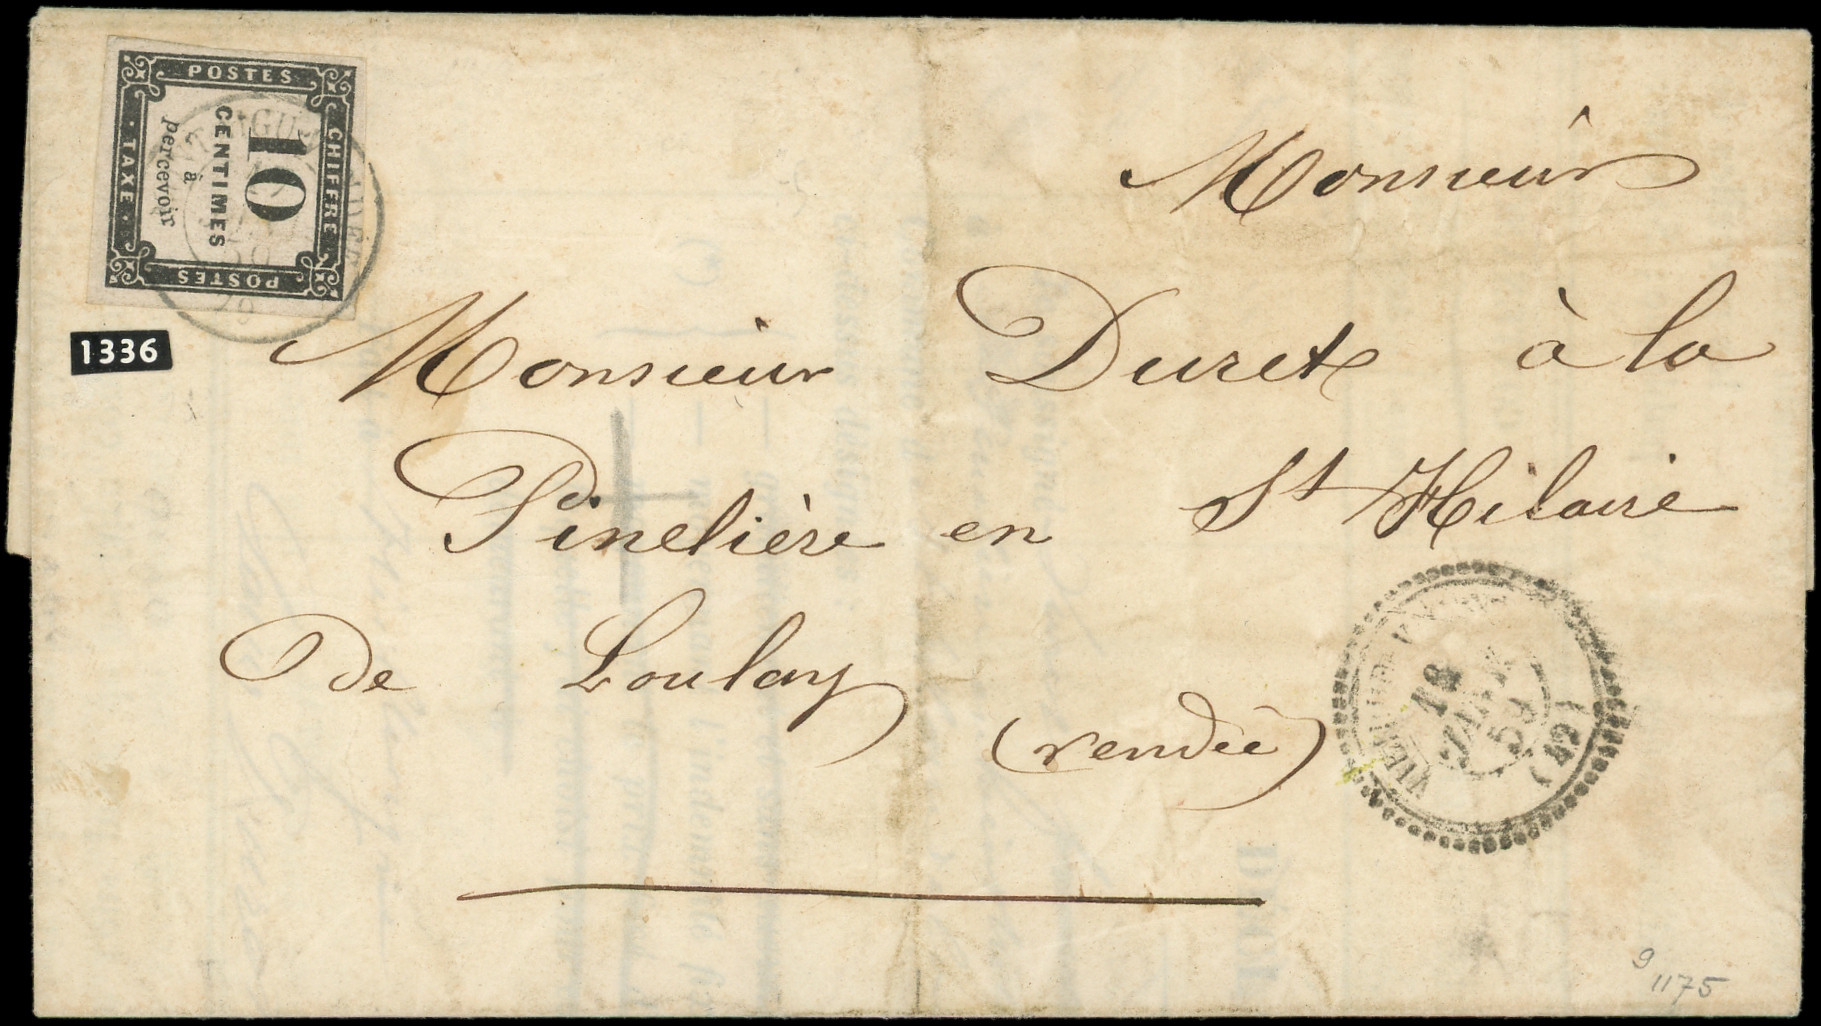 POSTES
CHIFFRE
10
CENTIMES
à
percevoir
TAXE
POSTES
1336
Monsieur
Monsieur Duret à la
Pinelière en St Hilaire
De Loulay
(vendée)
18
59
(79)
9
1175